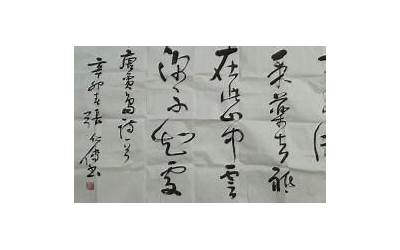 采藥去祇
在此山中雲
深不知處
唐賈島詩一首
辛卯春張仁書